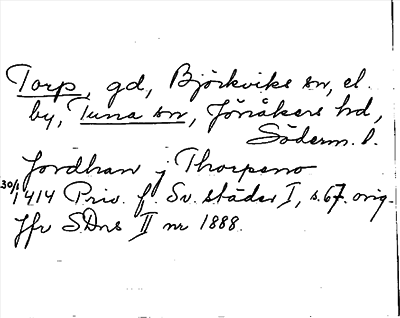 Torp, gd, Björkviks sn, el.
by, Tuna sn, Jönåkers hd,
Söderm. l.
Jordhan j Thorpeno
30/1 1414 Priv. f. Sv. städer I, s. 67. orig.
Jfr SDns II nr 1888.